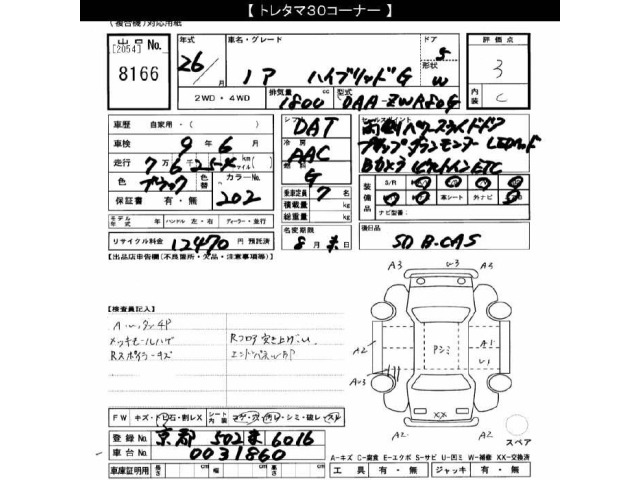 【 トレタマ30コーナー 】
(複合機)対応用紙
出品No. [2054] 8166
年式 26/ 月
車名・グレード ノア ハイブリッドG
ドア 5
形状 W
評価点 3
内装 C
2WD・4WD
排気量 1800 cc
型式 DAA-ZWR80G
車歴 自家用・( )
車検 9年6月
走行 7万6254 km(マイル)
色 ブラック 色替 カラーNo. 202
保証書 有・無
シフト DAT
冷房 AAC
燃料 G
乗車定員 7 名
積載量 kg
総重量 kg
セールスポイント
両側パワースライドドア
フリップダウンモニター LEDヘッド
Bカメラ ビルトインETC
装備品 S/R
革シート 外ナビ
ナビ型番:
モデル年式 年 ハンドル 左・右 ディーラー・並行
リサイクル料金 12470 円 預託済
名変期限 8月末
後日品 SD B-CAS
【出品店申告欄(不良箇所・欠品・注意事項等)】
【検査員記入】
メッキモールハゲ
Rフロア突き上げ
A3 U3 A3
A2 アンミ A1
U1
AU3
XX
A2 A2
スペア
FW キズ・トビ石・割レX シート内装 コゲ・穴・汚レ・シミ・破レ・スレ
登録No. 京都 502 ま 6016
車台No. 0031860
車庫証明用 長さ cm 幅 cm 高さ cm
A-キズ C-腐食 E-エクボ S-サビ U-凹ミ W-補修 XX-交換済
工具 有・無 ジャッキ 有・無